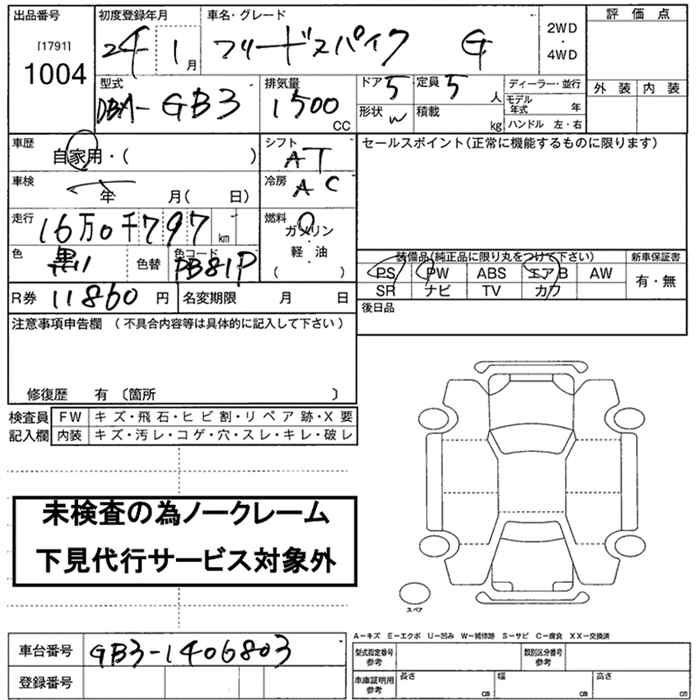 出品番号 初度登録年月 車名・グレード 評価点
[1791] 1004 24年 1月 フリードスパイク G 2WD・4WD
外装 内装
型式 排気量 ドア 5 定員 5人 ディーラー・並行
DBA-GB3 1500CC 形状 W 積載 kg モデル年式 年
ハンドル 左・右
車歴 自家用・( ) シフト AT セールスポイント(正常に機能するものに限ります)
車検 年 月( 日) 冷房 AC
走行 16万0千797km 燃料 ガソリン・軽・油 ( )
色 黒 色替 色コード PB81P
装備品(純正品に限り丸をつけて下さい) 新車保証書
PS PW ABS エアB AW 有・無
SR ナビ TV カワ
R券 11860円 名変期限 月 日 後日品
注意事項申告欄 (不具合内容等は具体的に記入して下さい)
修復歴 有 〔箇所 〕
検査員記入欄 FW キズ・飛石・ヒビ割・リペア跡・X要
内装 キズ・汚レ・コゲ・穴・スレ・キレ・破レ
未検査の為ノークレーム
下見代行サービス対象外
スペア
A−キズ E−エクボ U−凹み W−補修跡 S−サビ C−腐食 XX−交換済
車台番号 GB3-1406803 型式指定番号 参考 類別区分番号 参考
登録番号 車庫証明用 参考 長さ cm 幅 cm 高さ cm